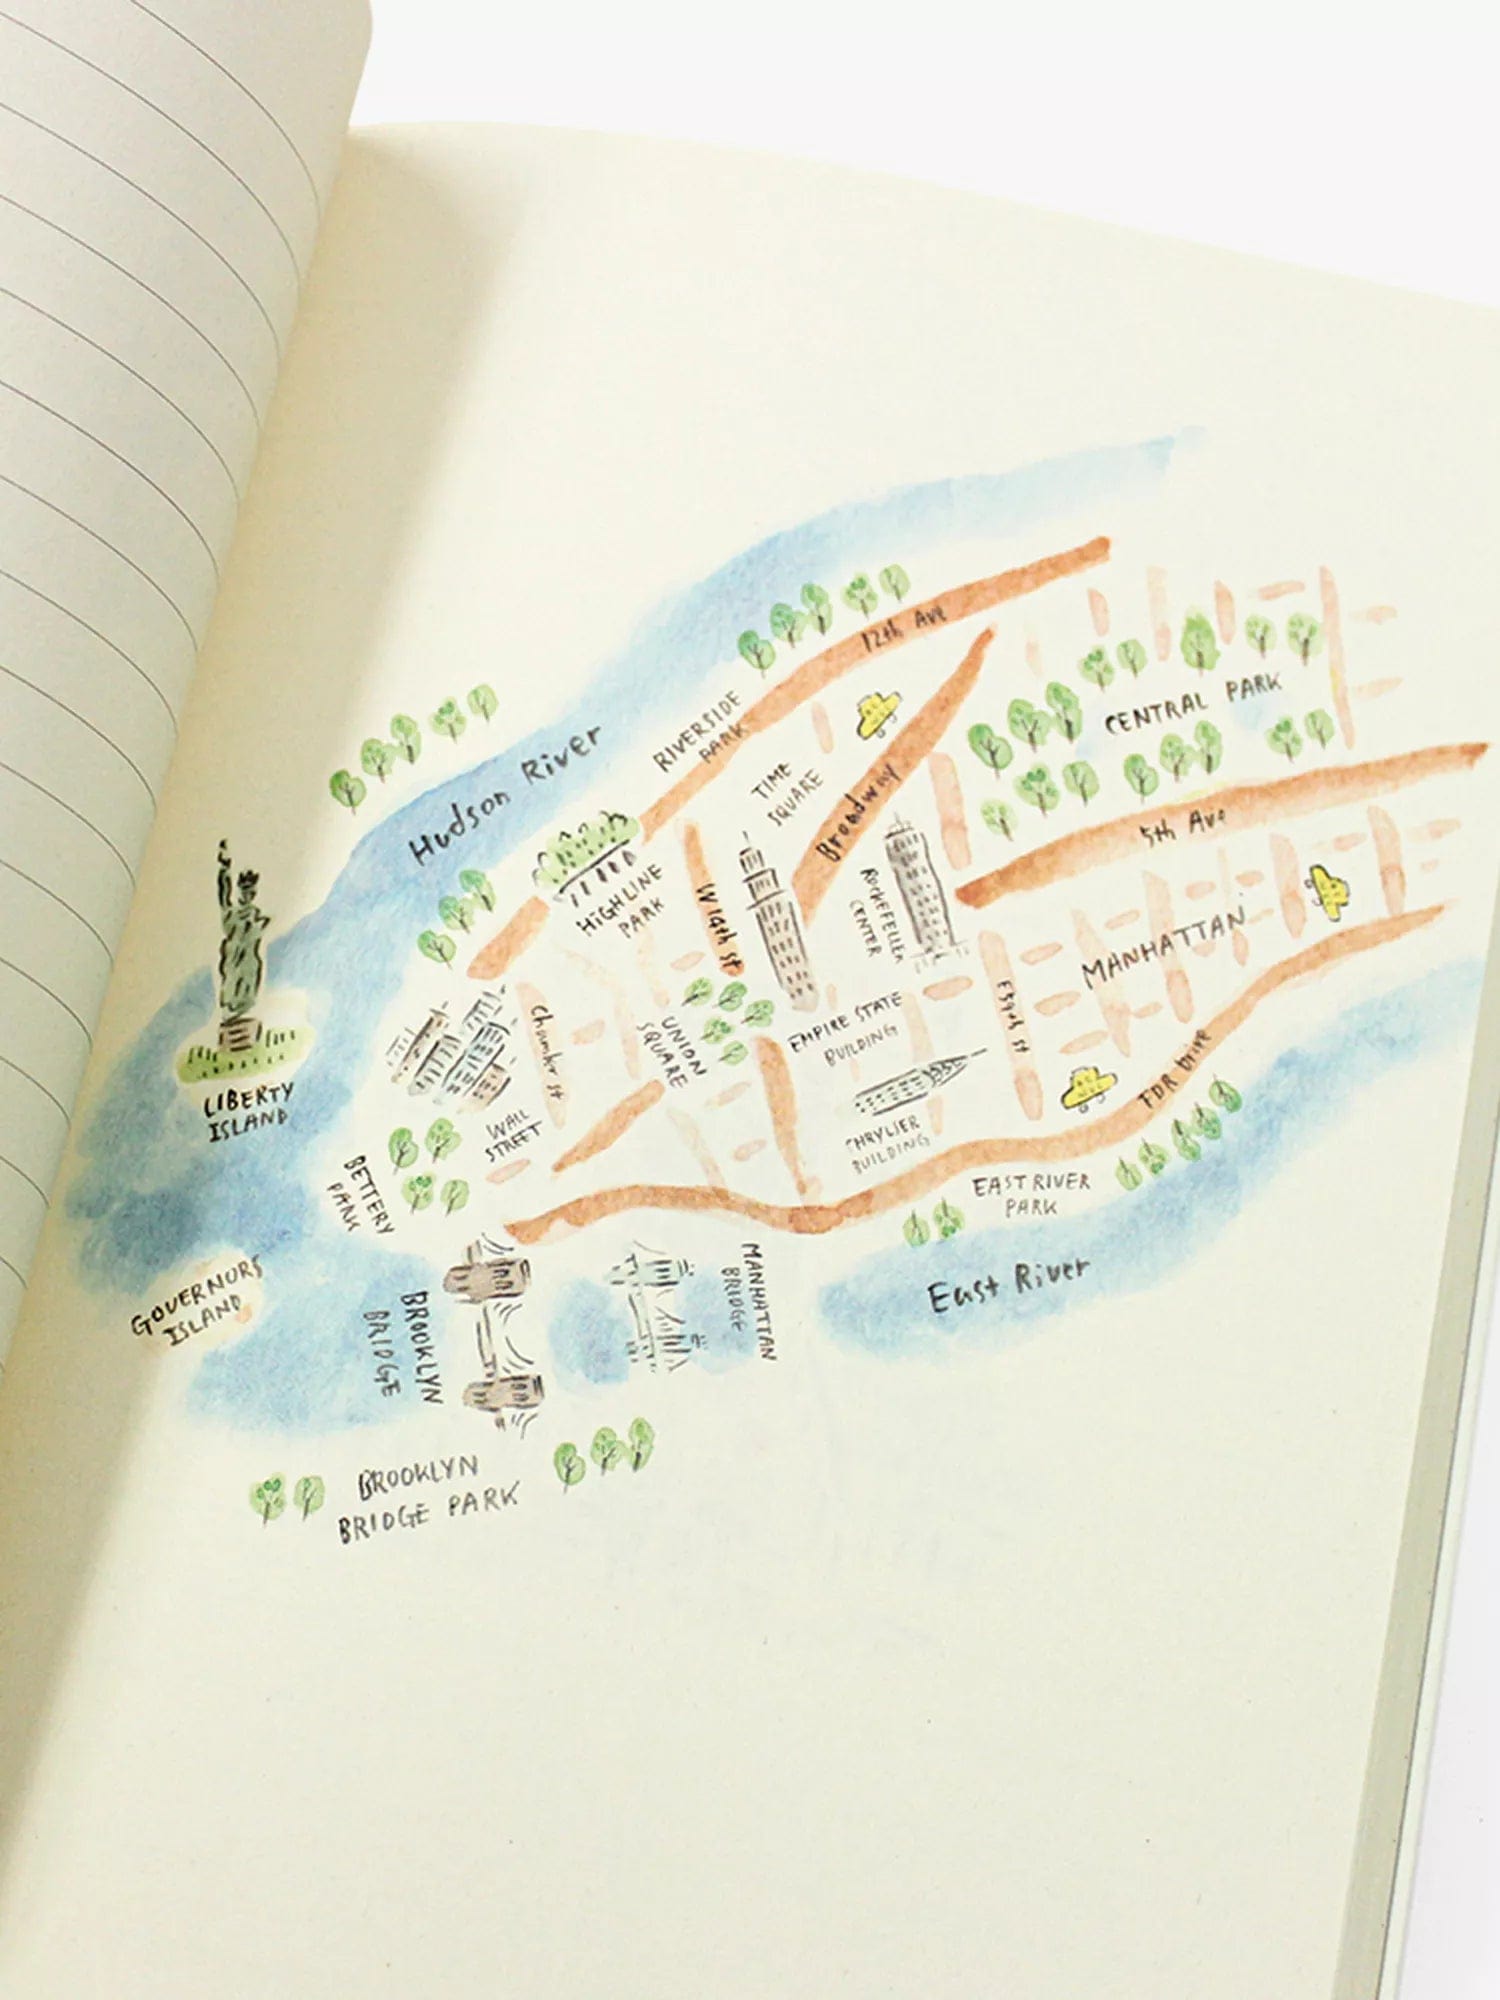 12th Ave
Hudson River
RIVERSIDE
PARK
CENTRAL PARK
TIME
SQUARE
Broadway
5th Ave
HIGHLINE
PARK
W 14th st
ROCKEFELLER
CENTER
MANHATTAN
LIBERTY
ISLAND
Chamber st
UNION
SQUARE
EMPIRE STATE
BUILDING
FDR Drive
WALL
STREET
CHRYLSER
BUILDING
EAST RIVER
PARK
BETTERY
PARK
East River
GOVERNORS
ISLAND
BROOKLYN
BRIDGE
MANHATTAN
BRIDGE
BROOKLYN
BRIDGE PARK